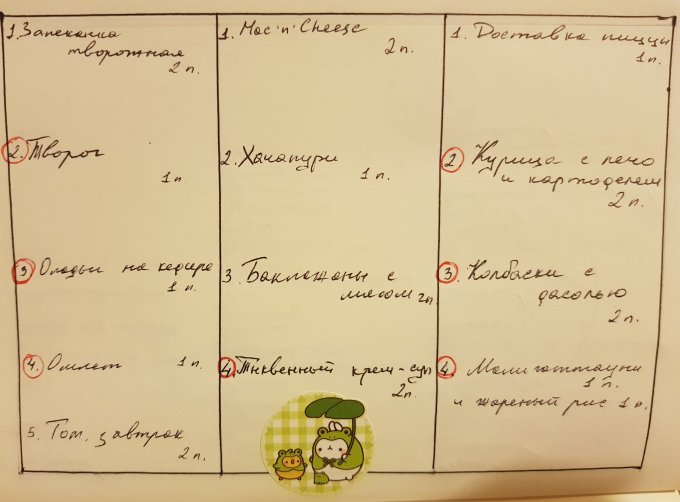 1. Запеканка
творожная
2 п.
2. Творог
1 п
3 Оладьи на кефире
1 п.
4. Омлет 1 п.
5. Гот. завтрак
2 п.
1. Mac 'n' Cheese
2 п.
2. Хачапури
1 п.
3 Баклажаны с
мясом 2 п.
4. Тыквенный крем-суп
2 п.
1. Доставка пиццы
1 п.
2 Курица с лечо
и картофелем
2 п.
3. Колбаски с
фасолью
2 п.
4.
1 п.
и жареный рис 1 п.